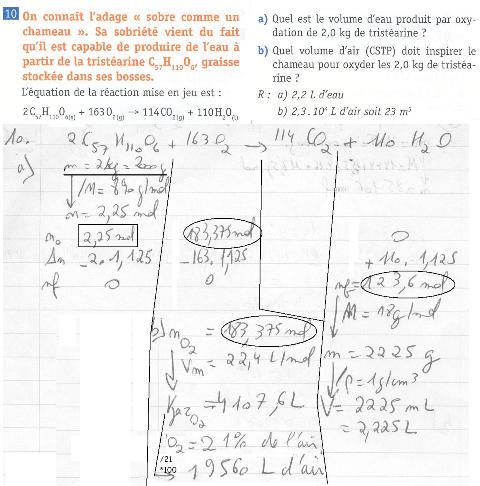 10 On connaît l'adage « sobre comme un
chameau ». Sa sobriété vient du fait
qu'il est capable de produire de l'eau à
partir de la tristéarine C57H110O6, graisse
stockée dans ses bosses.
L'équation de la réaction mise en jeu est :
2 C57H110O6(s) + 163 O2(g) → 114 CO2(g) + 110 H2O(l)
a) Quel est le volume d'eau produit par oxy-
dation de 2,0 kg de tristéarine ?
b) Quel volume d'air (CSTP) doit inspirer le
chameau pour oxyder les 2,0 kg de tristéa-
rine ?
R : a) 2,2 L d'eau
b) 2,3 . 10⁴ L d'air soit 23 m³
10. 2 C57 H110 O6 + 163 O2 → 114 CO2 + 110 H2O
a) m = 2kg = 2000g
/M = 890 g/mol
n = 2,25 mol
n0 2,25 mol 183,375 mol 0
Δn -2. 1,125 -163. 1,125 + 110. 1,125
nf 0 0 nf = 123,6 mol
M = 18g/mol
m = 2225 g
/ρ = 1g/cm³
V = 2225 mL
= 2,225L
b) nO2 = 183,375 mol
Vm = 22,4 L/mol
= 4107,6 L
O2 = 21% de l'air
/21
*100
→ 19560 L d'air